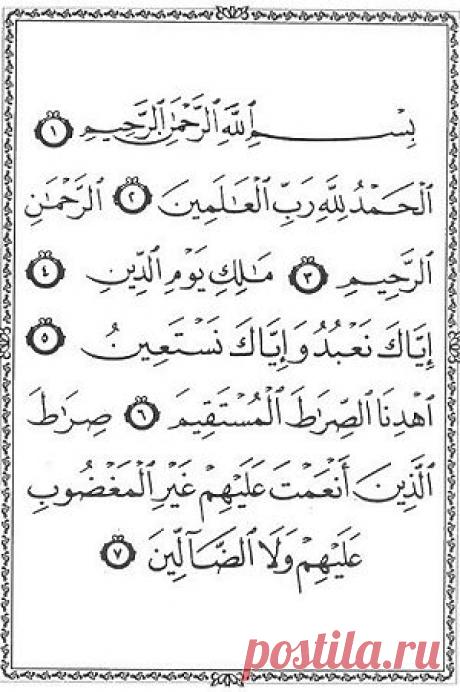 بِسْمِ ٱللَّهِ ٱلرَّحْمَٰنِ ٱلرَّحِيمِ ١
ٱلْحَمْدُ لِلَّهِ رَبِّ ٱلْعَٰلَمِينَ ٢ ٱلرَّحْمَٰنِ
ٱلرَّحِيمِ ٣ مَٰلِكِ يَوْمِ ٱلدِّينِ ٤
إِيَّاكَ نَعْبُدُ وَإِيَّاكَ نَسْتَعِينُ ٥
ٱهْدِنَا ٱلصِّرَٰطَ ٱلْمُسْتَقِيمَ ٦ صِرَٰطَ
ٱلَّذِينَ أَنْعَمْتَ عَلَيْهِمْ غَيْرِ ٱلْمَغْضُوبِ
عَلَيْهِمْ وَلَا ٱلضَّآلِّينَ ٧
postila.ru